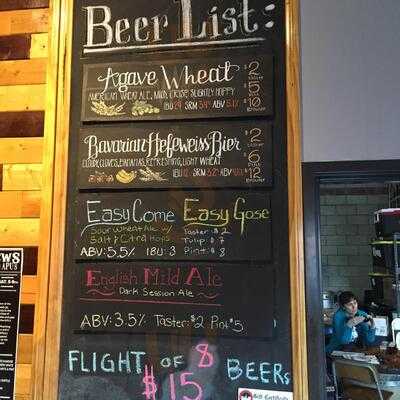 Beer List:
Agave Wheat $2
AMERICAN WHEAT ALE, MILD, CRISP, SLIGHTLY HOPPY $5
ABV $10
Bavarian Hefeweiss Bier $2
CLOUDY, CLOVES, BANANAS, REFRESHING, LIGHT WHEAT $6
IBU 12 ABV $12
Easy Come Easy Gose
Sour Wheat Ale w/ Taster: $2
Salt & Citra Hops Tulip: $7
ABV: 5.5% IBU: 3 Pint: $8
English Mild Ale
Dark Session Ale
ABV: 3.5% Taster: $2 Pint $5
FLIGHT OF 8 BEERS
$15